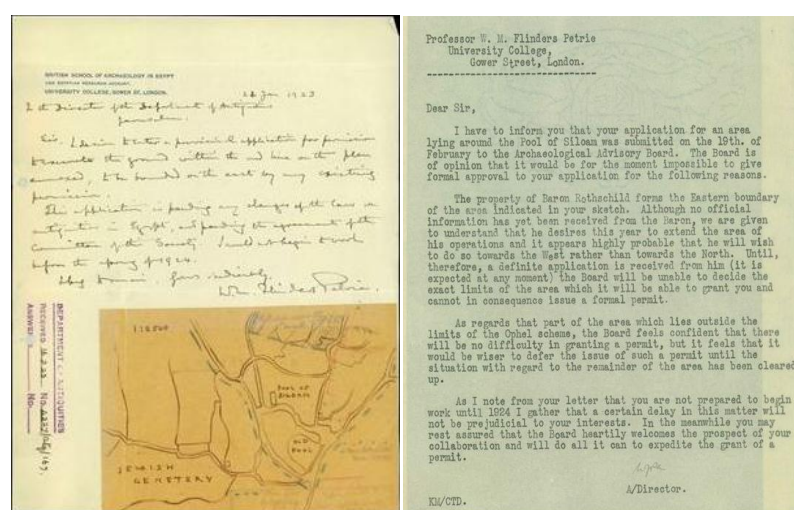 BRITISH SCHOOL OF ARCHAEOLOGY IN EGYPT
AND EGYPTIAN RESEARCH ACCOUNT,
UNIVERSITY COLLEGE, GOWER ST, LONDON.
Jan 1923
To the Director of the Department of Antiquities
Jerusalem.
Sir. I desire to enter a provisional application for permission
to excavate the ground within the red line on the plan
annexed, to be bounded on the east by any existing
permission.
This application is pending any changes of the law on
antiquities in Egypt, and pending the agreement of the
Committee of the Society. I would not begin to work
before the spring of 1924.
Yours
Wm. Flinders Petrie.
DEPARTMENT OF ANTIQUITIES
RECEIVED No.
ANSWER No.
1:2500
POOL OF
SILOAM
OLD
POOL
JEWISH
CEMETERY
Professor W. M. Flinders Petrie
University College,
Gower Street, London.
Dear Sir,
I have to inform you that your application for an area
lying around the Pool of Siloam was submitted on the 19th. of
February to the Archaeological Advisory Board. The Board is
of opinion that it would be for the moment impossible to give
formal approval to your application for the following reasons.
The property of Baron Rothschild forms the Eastern boundary
of the area indicated in your sketch. Although no official
information has yet been received from the Baron, we are given
to understand that he desires this year to extend the area of
his operations and it appears highly probable that he will wish
to do so towards the West rather than towards the North. Until,
therefore, a definite application is received from him (it is
expected at any moment) the Board will be unable to decide the
exact limits of the area which it will be able to grant you and
cannot in consequence issue a formal permit.
As regards that part of the area which lies outside the
limits of the Ophel scheme, the Board feels confident that there
will be no difficulty in granting a permit, but it feels that it
would be wiser to defer the issue of such a permit until the
situation with regard to the remainder of the area has been cleared
up.
As I note from your letter that you are not prepared to begin
work until 1924 I gather that a certain delay in this matter will
not be prejudicial to your interests. In the meanwhile you may
rest assured that the Board heartily welcomes the prospect of your
collaboration and will do all it can to expedite the grant of a
permit.
A/Director.
KM/CTD.